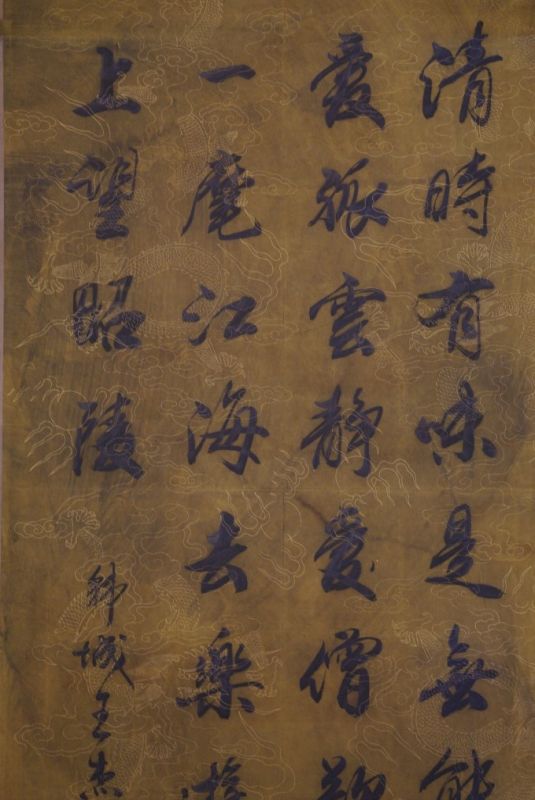 清時有味是無能
愛孤雲靜愛僧欲
一麾江海去樂遊
上望昭陵
韓城王杰